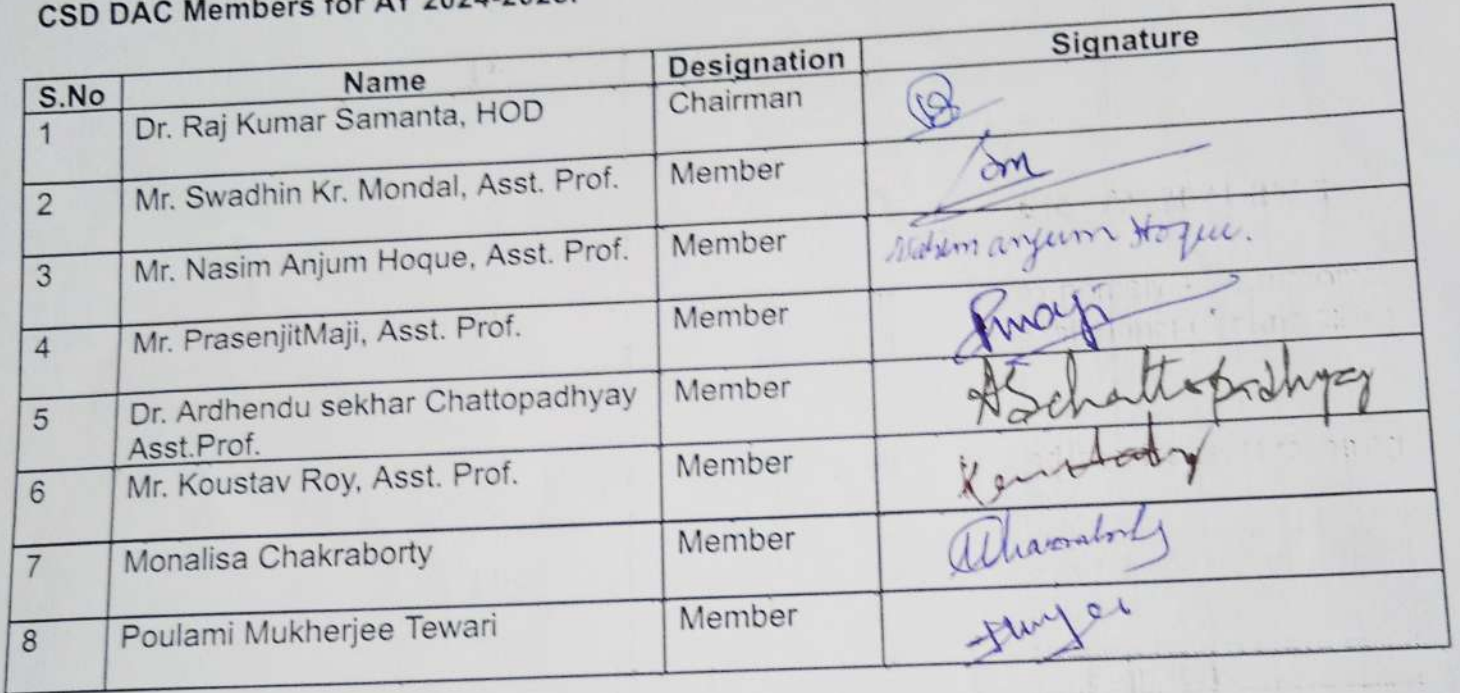 CSD DAC Members for AY 2024-2025:
S.No Name Designation Signature
1 Dr. Raj Kumar Samanta, HOD Chairman
2 Mr. Swadhin Kr. Mondal, Asst. Prof. Member
3 Mr. Nasim Anjum Hoque, Asst. Prof. Member Nasim anjum Hoque.
4 Mr. PrasenjitMaji, Asst. Prof. Member Pmaji
5 Dr. Ardhendu sekhar Chattopadhyay Member ASchattopadhyay
Asst.Prof.
6 Mr. Koustav Roy, Asst. Prof. Member
7 Monalisa Chakraborty Member
8 Poulami Mukherjee Tewari Member